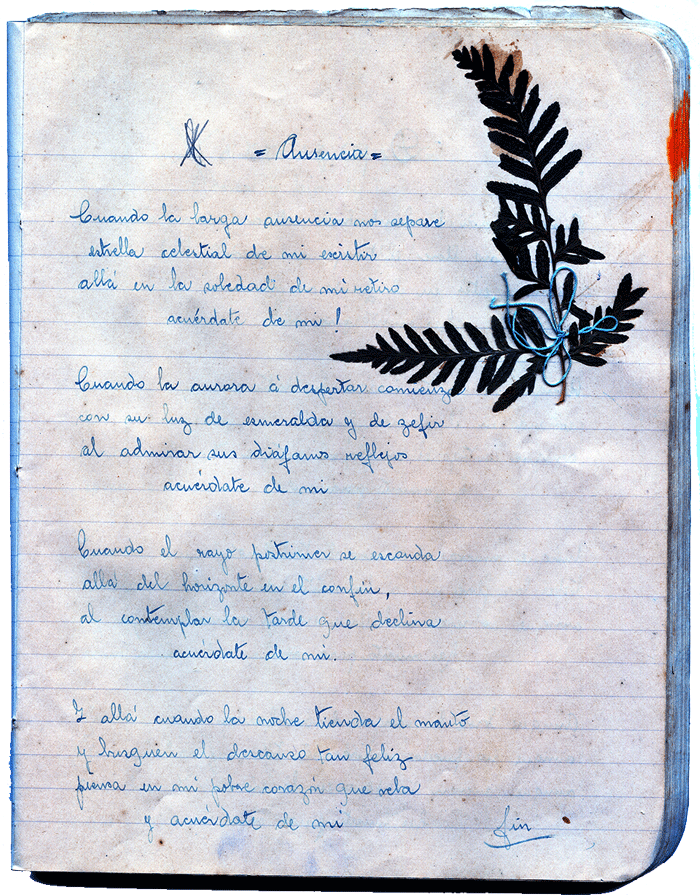 = Ausencia =
Cuando la larga ausencia nos separe
estrella celestial de mi existir
allá en la soledad de mi retiro
acuérdate de mi !
Cuando la aurora á despertar comienza
con su luz de esmeralda y de zefir
al admirar sus diáfanos reflejos
acuérdate de mi
Cuando el rayo postrimer se esconda
allá del horizonte en el confin,
al contemplar la tarde que declina
acuérdate de mi.
Y allá cuando la noche tienda el manto
y busquen el descanso tan feliz
piensa en mi pobre corazón que vela
y acuérdate de mi
fin